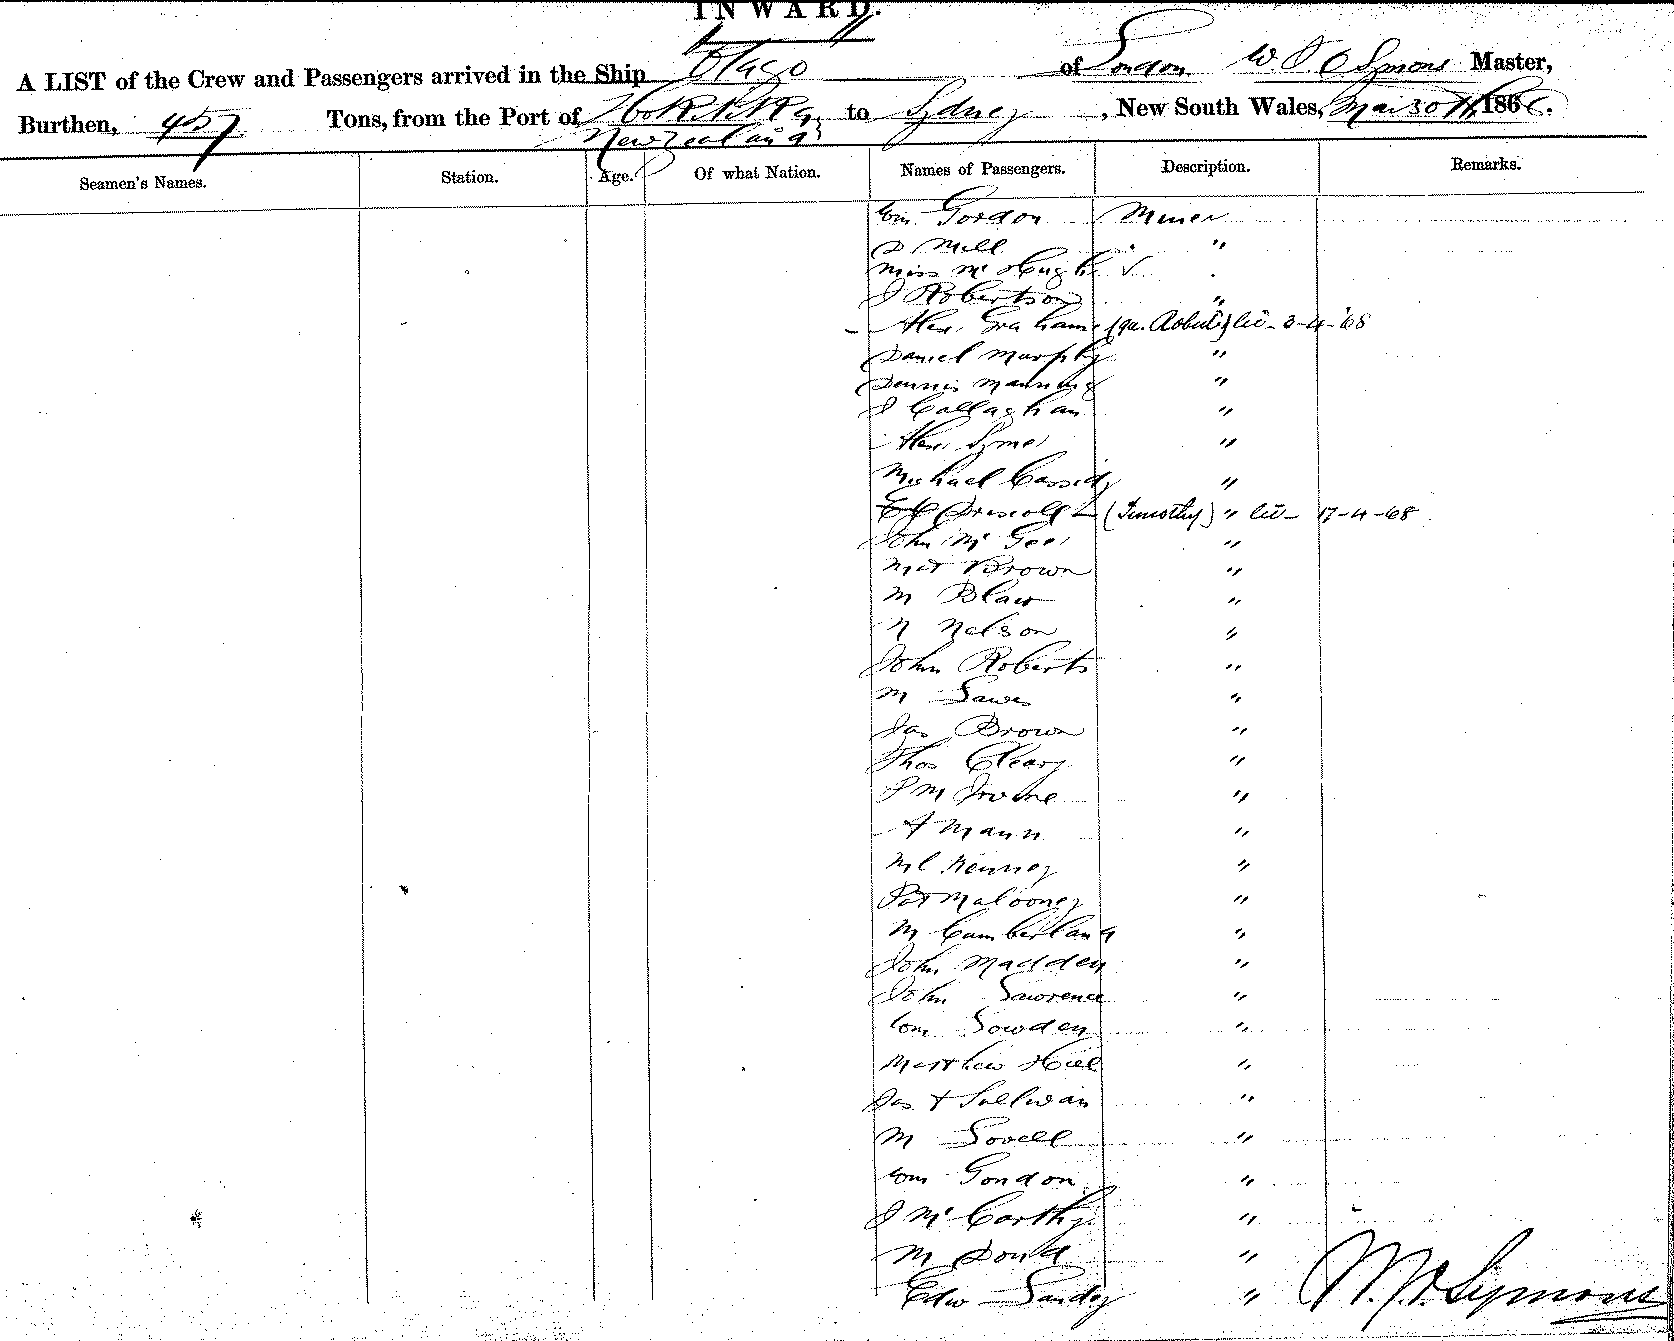 INWARD.
A LIST of the Crew and Passengers arrived in the Ship Otago of London W. Symons Master,
Burthen, 457 Tons, from the Port of Hokitika to Sydney, New South Wales, Mar 30th 186
New Zealand
Seamen's Names. Station. Age. Of what Nation. Names of Passengers. Description. Remarks.
Wm Gordon Miner
D Mill "
Miss McHugh
J Robertson "
Alex. Grahame lic- 3-4-'68
Daniel Murphy "
Dennis Manning "
J Callaghan "
Alex. "
Michael Cassidy "
Driscoll (Timothy) " lic- 17-4-'68
John McGee "
Mat Brown "
M "
N Nelson "
John Roberts "
M "
Jas Brown "
Thos Cleary "
J M Irvine "
A Mann "
Ml Kenney "
Pat Malooney "
M Cumberland "
John Madden "
John Lawrence "
Wm Lowden "
Matthew Hill "
Jas Sullivan "
M Lovell "
Wm Gondon "
J McCarthy "
M Donld "
Edw "
Symons